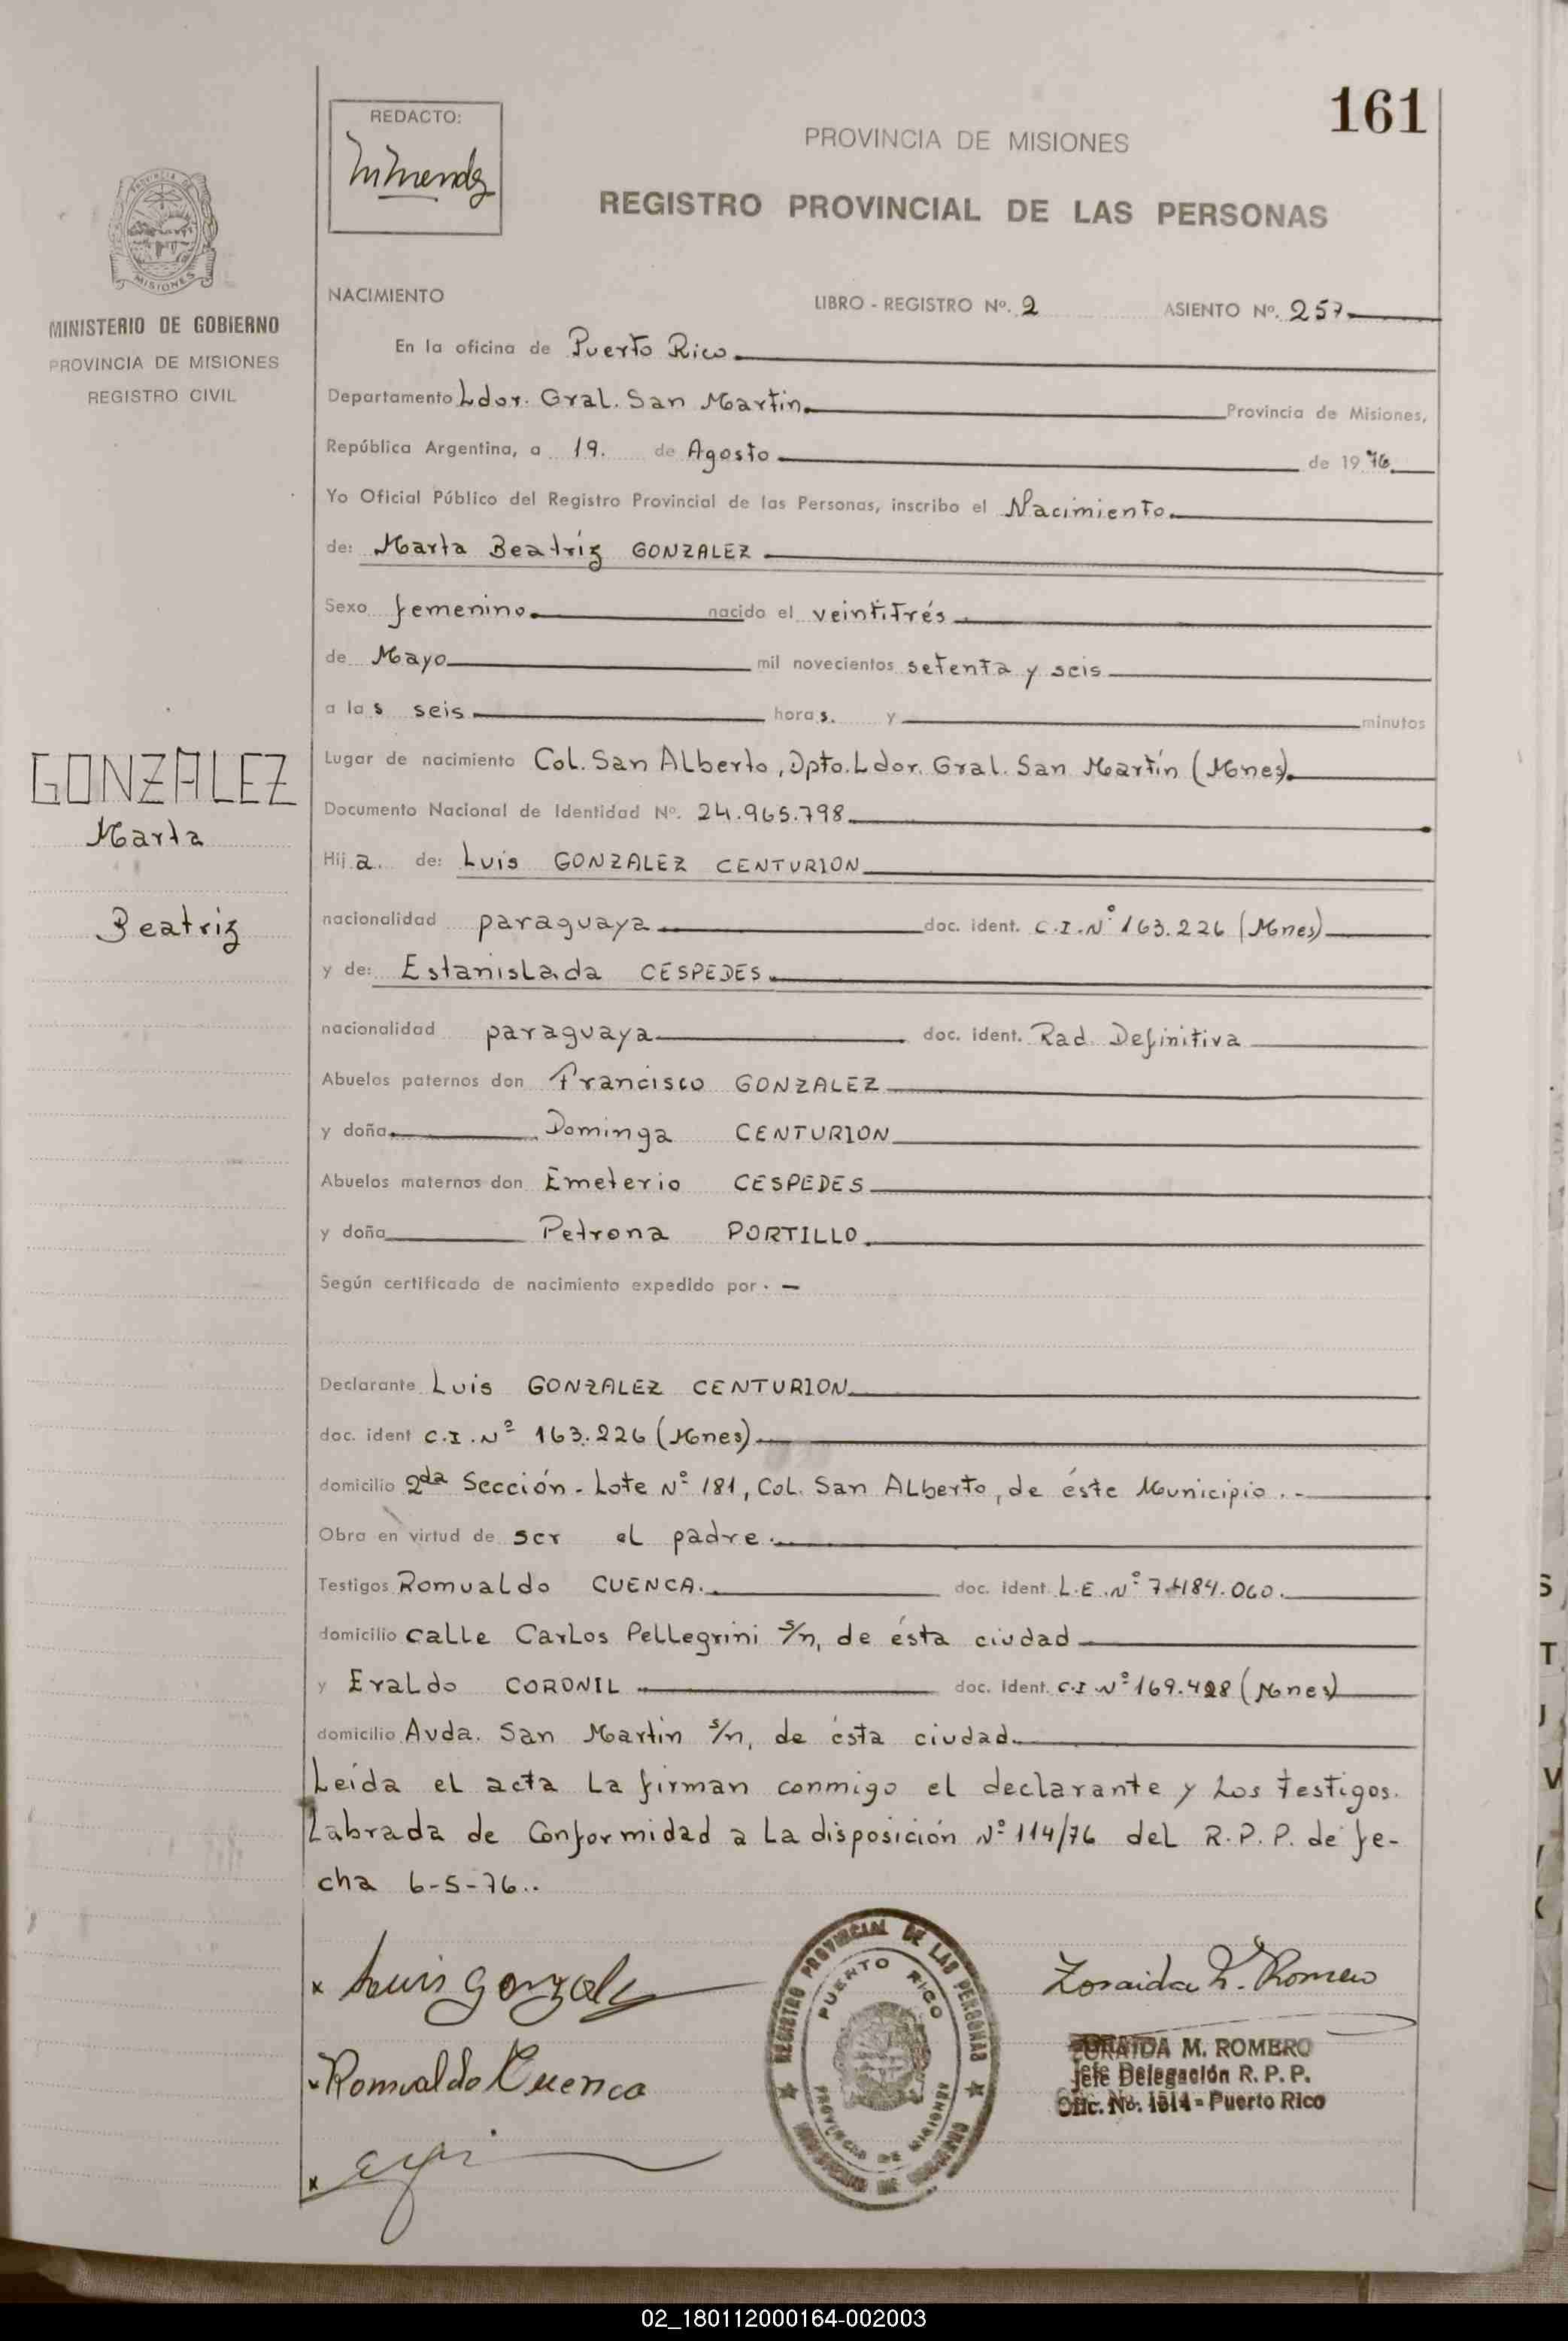 161
REDACTO:
PROVINCIA DE MISIONES
REGISTRO PROVINCIAL DE LAS PERSONAS
MINISTERIO DE GOBIERNO
PROVINCIA DE MISIONES
REGISTRO CIVIL
NACIMIENTO LIBRO - REGISTRO Nº. 2 ASIENTO Nº. 257
En la oficina de Puerto Rico
Departamento Ldor. Gral. San Martín Provincia de Misiones,
República Argentina, a 19. de Agosto de 1976
Yo Oficial Público del Registro Provincial de las Personas, inscribo el Nacimiento
de: Marta Beatriz GONZALEZ
Sexo femenino nacido el veintitrés
de Mayo mil novecientos setenta y seis
a las seis horas. y minutos
Lugar de nacimiento Col. San Alberto, Dpto. Ldor. Gral. San Martín (Mnes).
Documento Nacional de Identidad Nº. 24.965.798
Hija de: Luis GONZALEZ CENTURION
nacionalidad paraguaya doc. ident. C.I.Nº 163.226 (Mnes)
y de: Estanislada CESPEDES
nacionalidad paraguaya doc. ident. Rad. Definitiva
Abuelos paternos don Francisco GONZALEZ
y doña Dominga CENTURION
Abuelos maternos don Emeterio CESPEDES
y doña Petrona PORTILLO
Según certificado de nacimiento expedido por . -
Declarante Luis GONZALEZ CENTURION
doc. ident C.I.Nº 163.226 (Mnes)
domicilio 2da Sección - Lote Nº 181, Col. San Alberto, de éste Municipio . -
Obra en virtud de ser el padre.
Testigos Romualdo CUENCA. doc. ident. L.E.Nº 7.484.060.
domicilio calle Carlos Pellegrini s/n, de ésta ciudad
y Evaldo CORONIL doc. ident. C.I Nº 169.428 (Mnes)
domicilio Avda. San Martín s/n, de ésta ciudad.
Leída el acta la firman conmigo el declarante y los testigos.
Labrada de Conformidad a la disposición Nº 114/76 del R.P.P. de fe-
cha 6-5-76..
GONZALEZ
Marta
Beatriz
x Luis Gonzalez
Romualdo Cuenca
x
REGISTRO PROVINCIAL DE LAS PERSONAS
PUERTO RICO
PROVINCIA DE MISIONES
Zoraida M. Romero
ZORAIDA M. ROMERO
Jefe Delegación R. P. P.
Ofic. No. 1514 - Puerto Rico
02_180112000164-002003